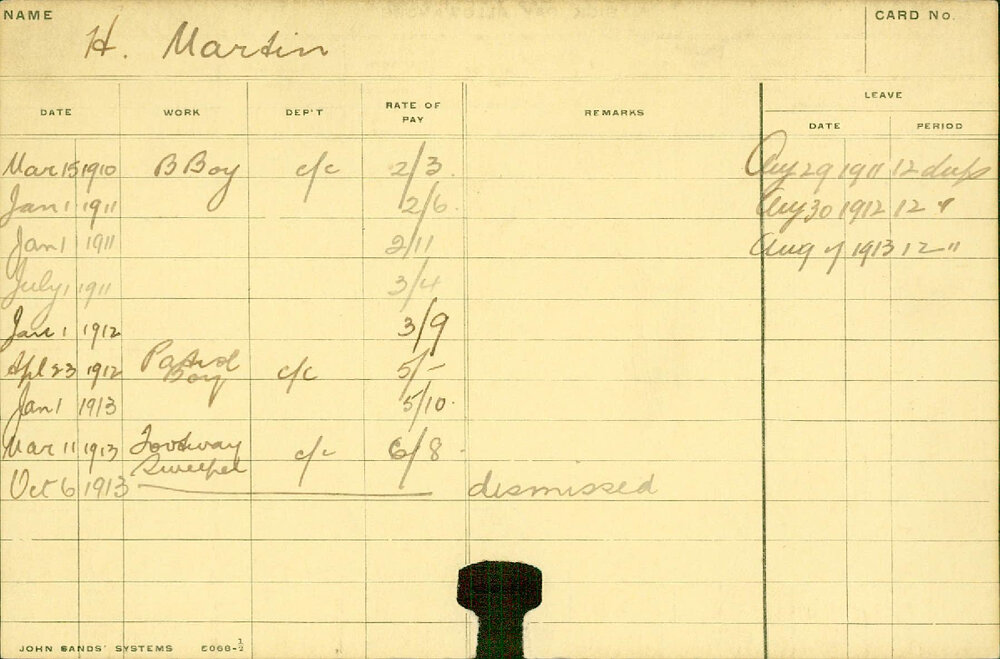 NAME
H. Martin
CARD No.
DATE WORK DEP'T RATE OF PAY REMARKS LEAVE
DATE PERIOD
Mar 15 1910 B Boy c/c 2/3. Aug 29 1911 12 days
Jan 1 1911 2/6. Aug 30 1912 12 "
Jan 1 1911 2/11 Aug 1913 12 "
July 1 1911 3/4
Jan 1 1912 3/9
Apl 23 1912 Patrol Boy c/c 5/-
Jan 1 1913 5/10.
Mar 11 1913 Footway Sweeper c/c 6/8
Oct 6 1913 dismissed
JOHN SANDS' SYSTEMS 5068-½